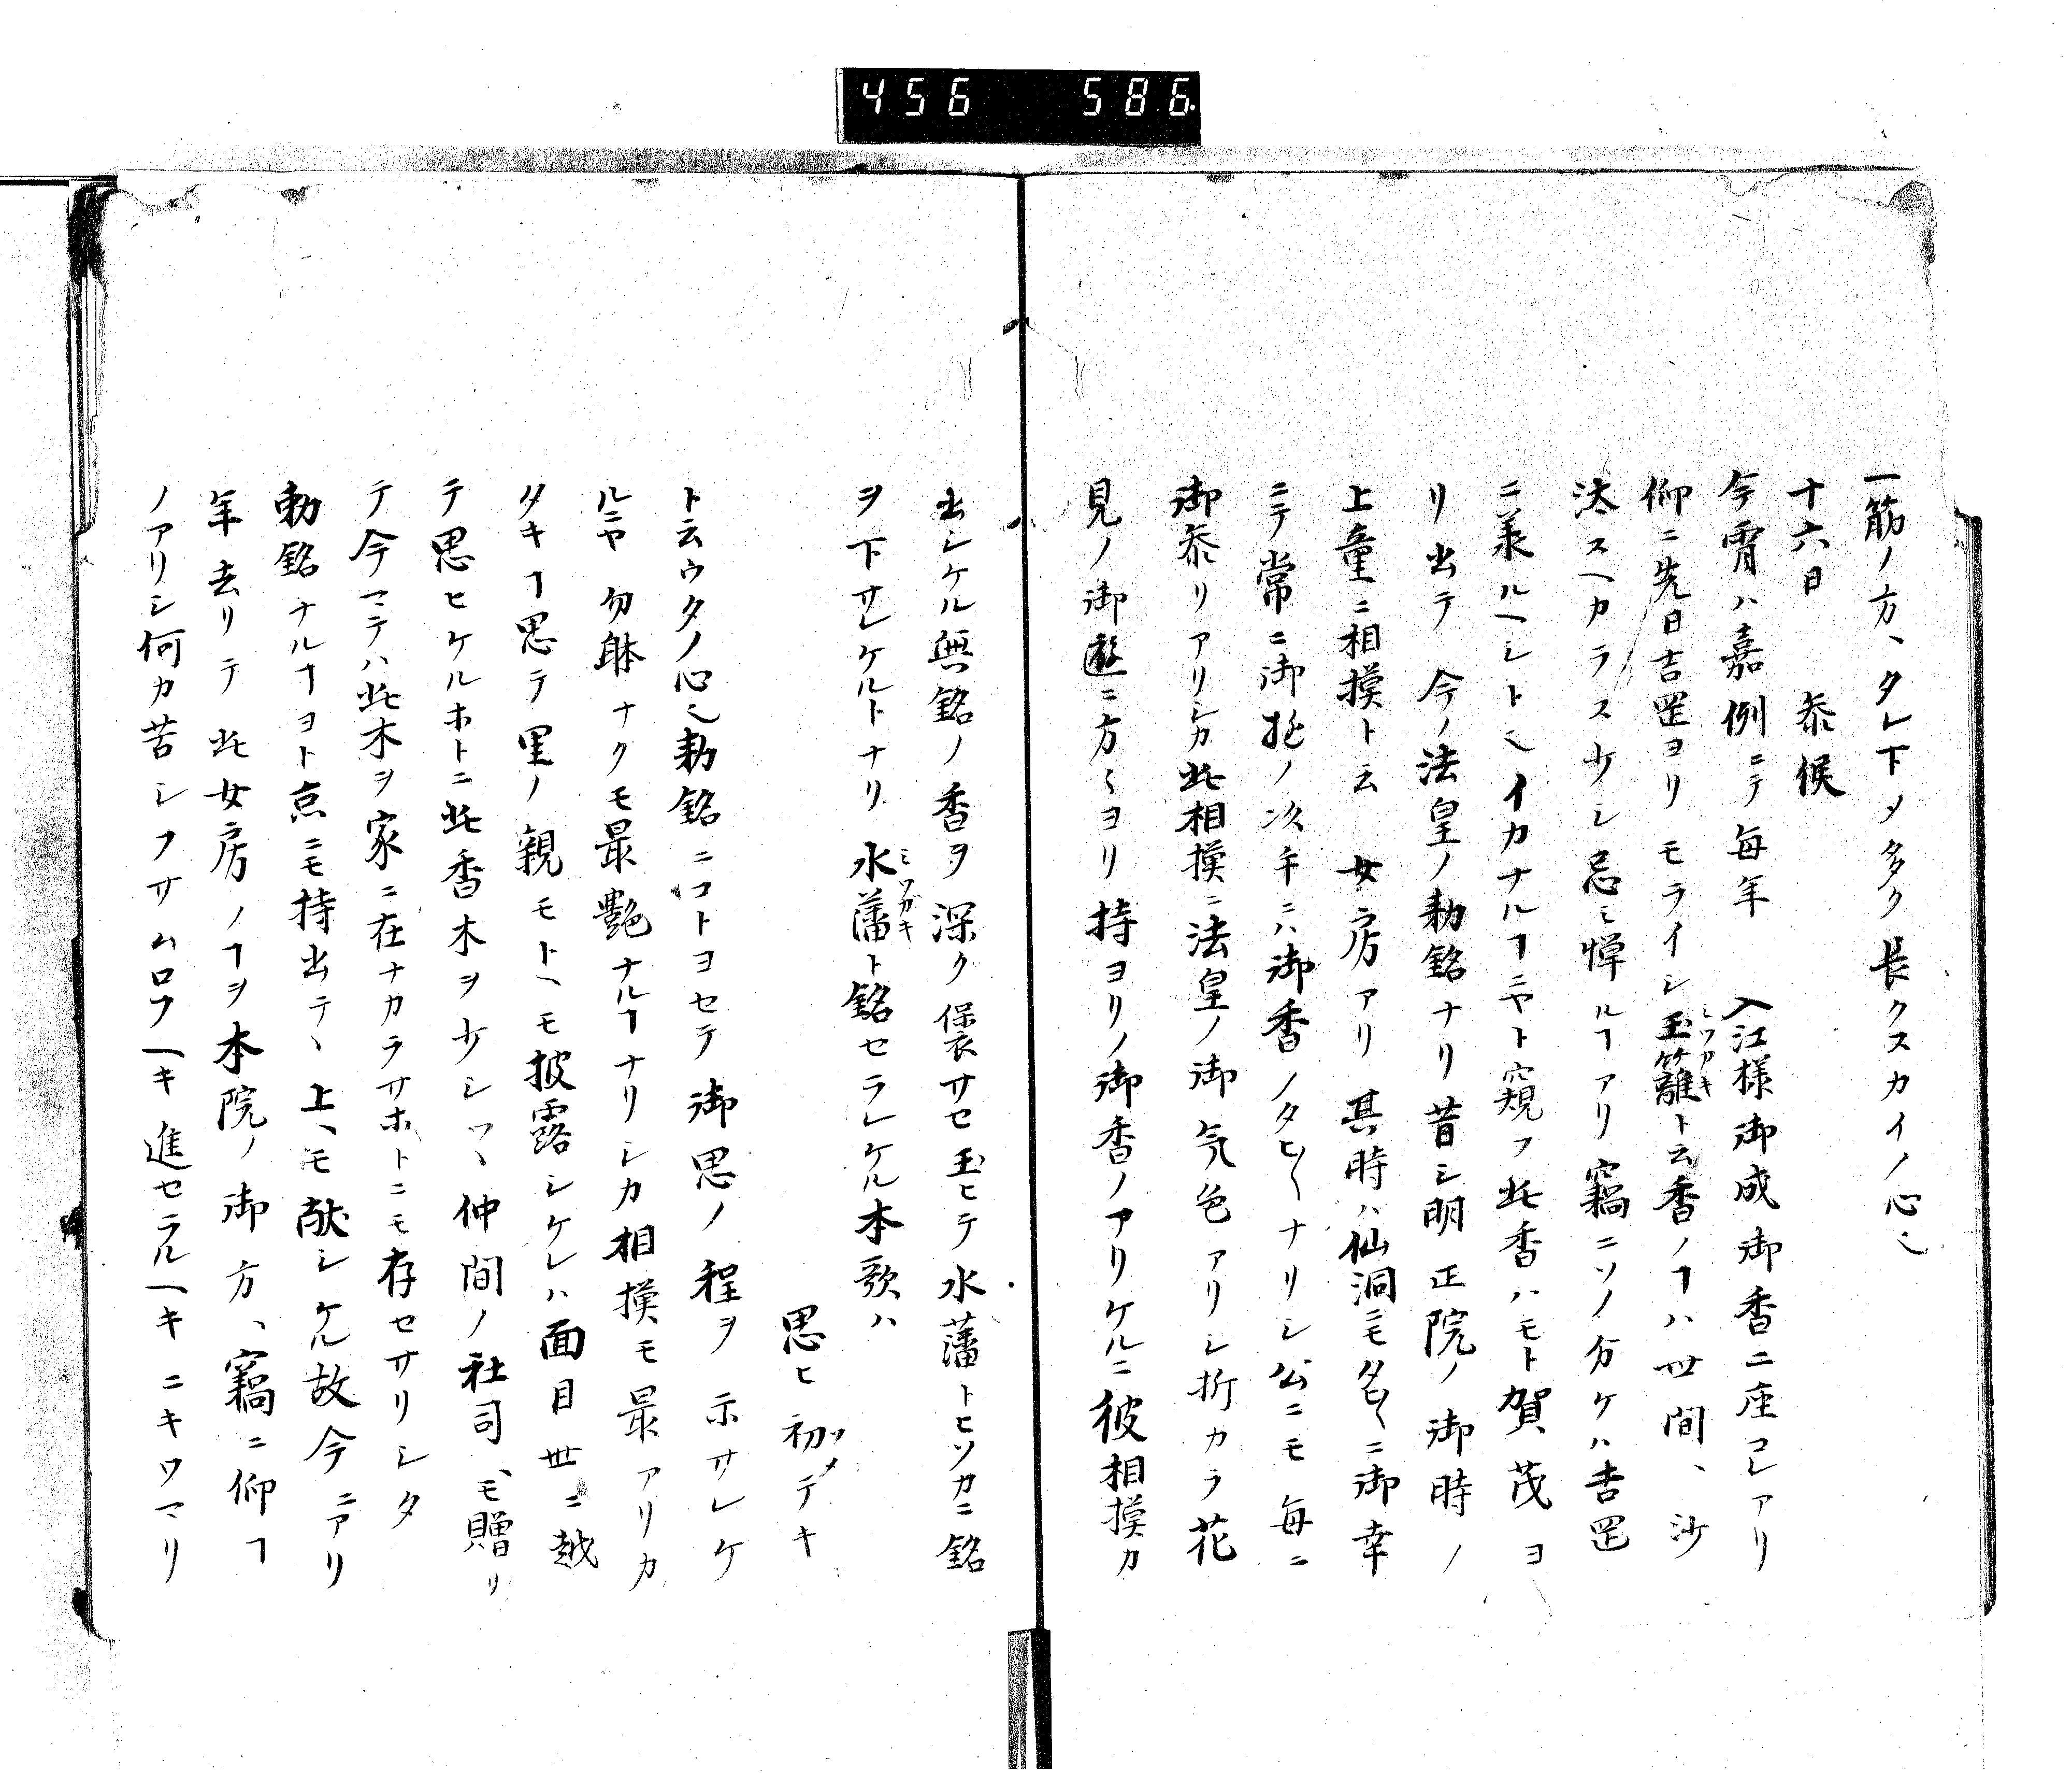 456 586
一筋ノ方ヽタレ下メタク長クスカイノ心也
十六日 参候
今霄ハ嘉例ニテ毎年 入江様御成御香二座コレアリ
仰ニ先日吉罡ヨリモライシ玉籬ト云香ノヿハ世間ヽ沙
ミツカキ
汰スヘカラス少シ忌ミ憚ルヿアリ竊ニソノ分ケハ吉罡
ニ兼ルヘシト也イカナルヿニヤト窺フ此香ハモト賀茂ヨ
リ出テ 今ノ法皇ノ勅銘ナリ昔シ明正院ノ御時ノ
上童ニ相摸ト云 女房アリ 其時ハ仙洞ニモタヒ〱ニ御幸
ニテ常ニ御遊ノ次手ニハ御香ノタヒ〱ナリシ公ニモ毎ニ
御参リアリシカ此相摸ニ法皇ノ御気色アリシ折カラ花
見ノ御遊ニ方〻ヨリ持ヨリノ御香ノアリケルニ彼相摸カ
出シケル無銘ノ香ヲ深ク褒サセ玉ヒテ水藩トヒソカニ銘
ヲ下サレケルトナリ 水藩ト銘セラレケル本歌ハ
ミツガキ
思ヒ初テキ
ソメ
ト云ウタノ心也勅銘ニコトヨセテ御思ノ程ヲ示サレケ
ルニヤ 勿躰ナクモ最艶ナルヿナリシカ相摸モ最アリカ
タキヿ思テ里ノ親モトヘモ披露シケレハ面目世ニ越
テ思ヒケルホトニ此香木ヲ少シツヽ仲間ノ社司ヽモ贈リ
テ今マテハ此木ヲ家ニ在ナカラサホトニモ存セサリシタ
勅銘ナルヿヨト京ニモ持出テヽ上ヽモ献シケル故今ニアリ
年去リテ此女房ノヿヲ本院ノ御方ヽ竊ニ仰ヿ
ノアリシ何カ苦シフサムロフヘキ進セラルヘキニキワマリ